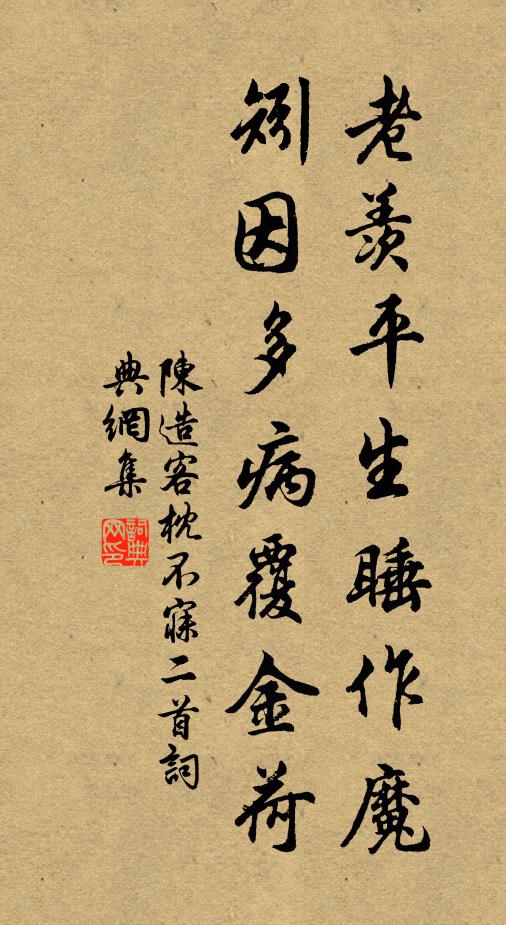 老羨平生睡作魔
矧因多病覆金荷
陳造客枕不寐二首詞
典網集
詞典网印